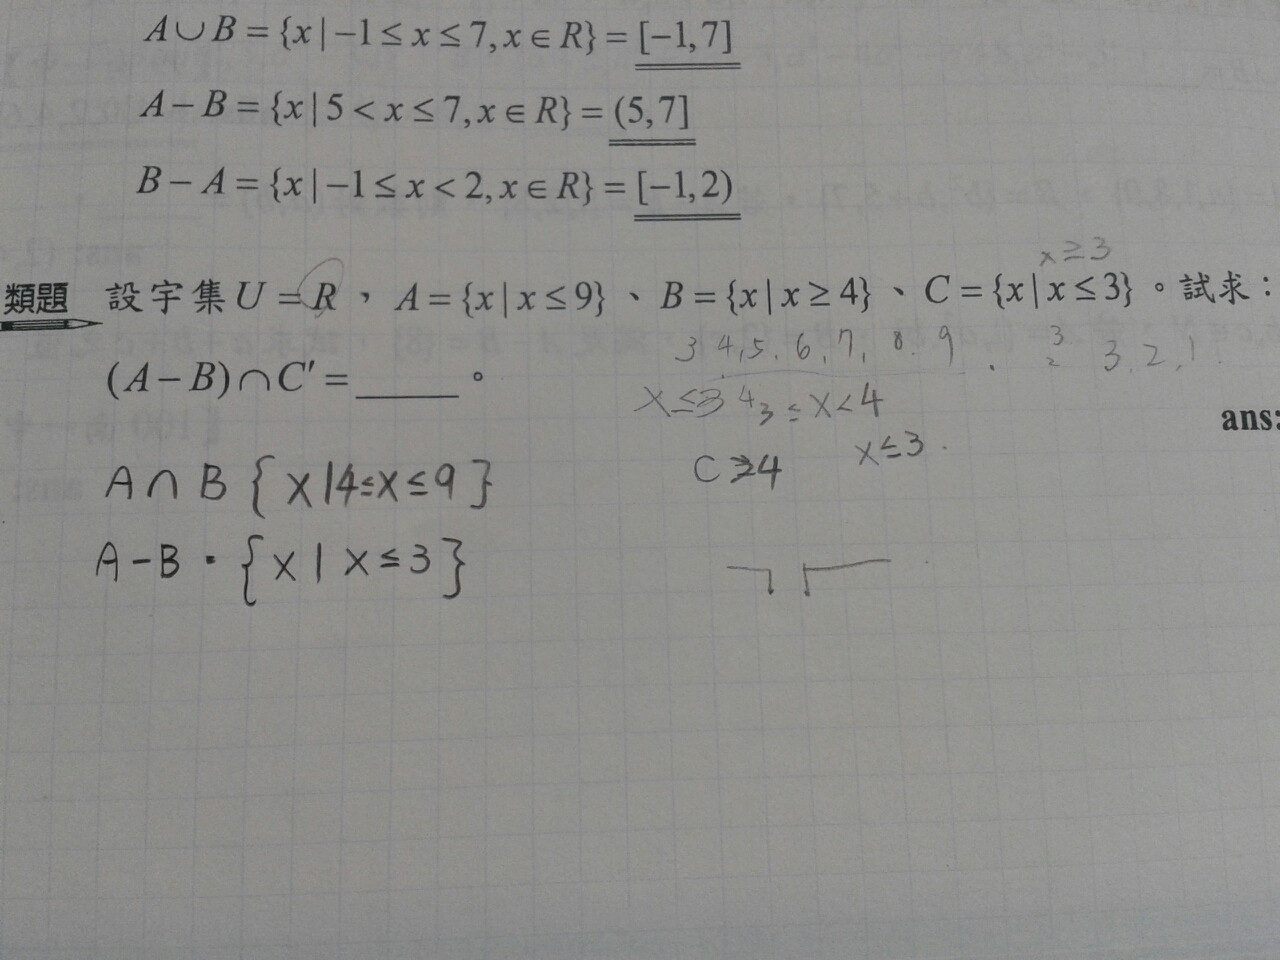 A∪B = {x | −1 ≤ x ≤ 7, x ∈ R} = [−1, 7]
A − B = {x | 5 < x ≤ 7, x ∈ R} = (5, 7]
B − A = {x | −1 ≤ x < 2, x ∈ R} = [−1, 2)
x ≥ 3
類題 設宇集 U = R, A = {x | x ≤ 9}、B = {x | x ≥ 4}、C = {x | x ≤ 3}。試求：
3 4, 5, 6, 7, 8. 9 3 2 3, 2, 1
(A − B) ∩ C′ = ______。
x ≤ 3 4 3 ≤ x < 4
ans:
C ≥ 4 x ≤ 3
A ∩ B { x | 4 ≤ x ≤ 9 }
A − B · { x | x ≤ 3 }